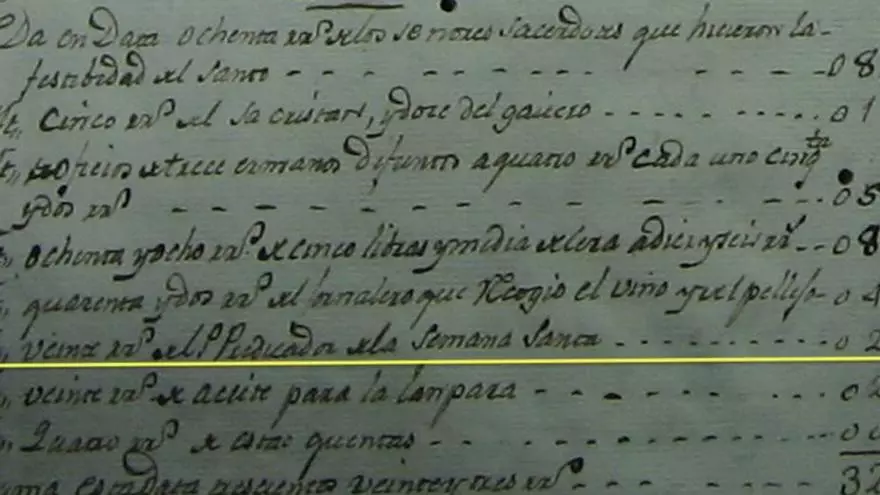 Da en Data ochenta rrs. a los señores sacerdotes que hicieron la - 
festibidad del santo - - - - - - - - - - 08
Yt. cinco rrs. al sacristan, y doce del gaitero - - - - - - - - 01
Yt. oficios de trece ermanos difuntos a quatro rrs. cada uno cinqta
y dos rrs - - - - - - - - - - 05
ochenta y ocho rrs. de cinco libras y media de cera a diez y seis rrs. - - 08
quarenta y dos rrs. al jornalero que Recogio el vino y el pellejo - 04
veinte rrs. al P. Predicador de la Semana Santa - - - - - - - - 02
veinte rrs. de aceite para la lanpara - - - - - - - - 02
Quatro rrs. de estas quentas - - - - - - - - 00
esta data trescientos veinte y tres rrs. - - - - - 32